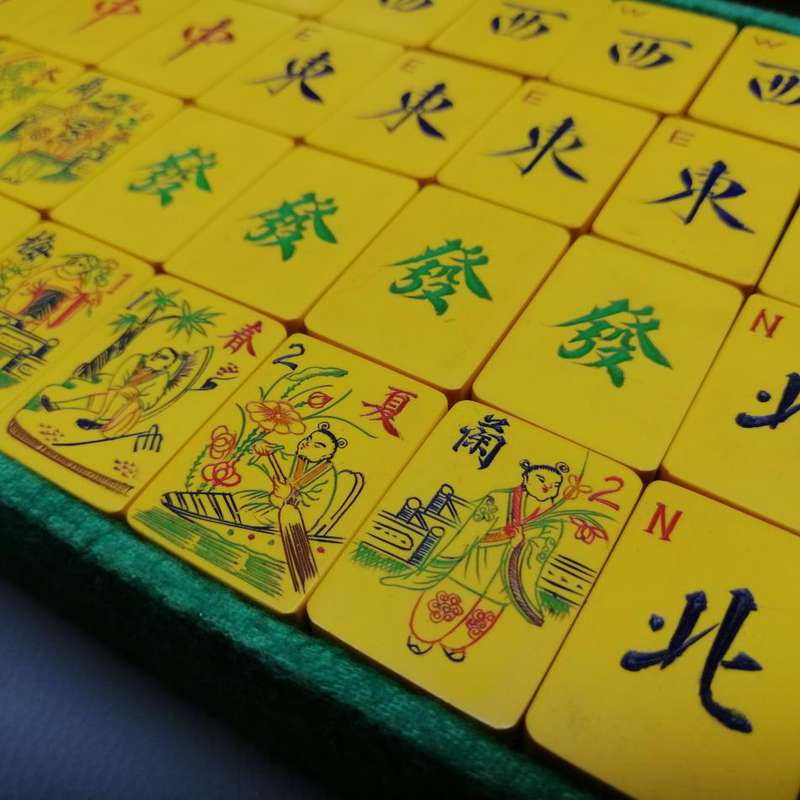 中 中 西 西 W 西 W 西
E 東 E 東 E 東 E 東
發 發 發 發 N 北
梅 1 1 春 2 夏 蘭 2 N 北